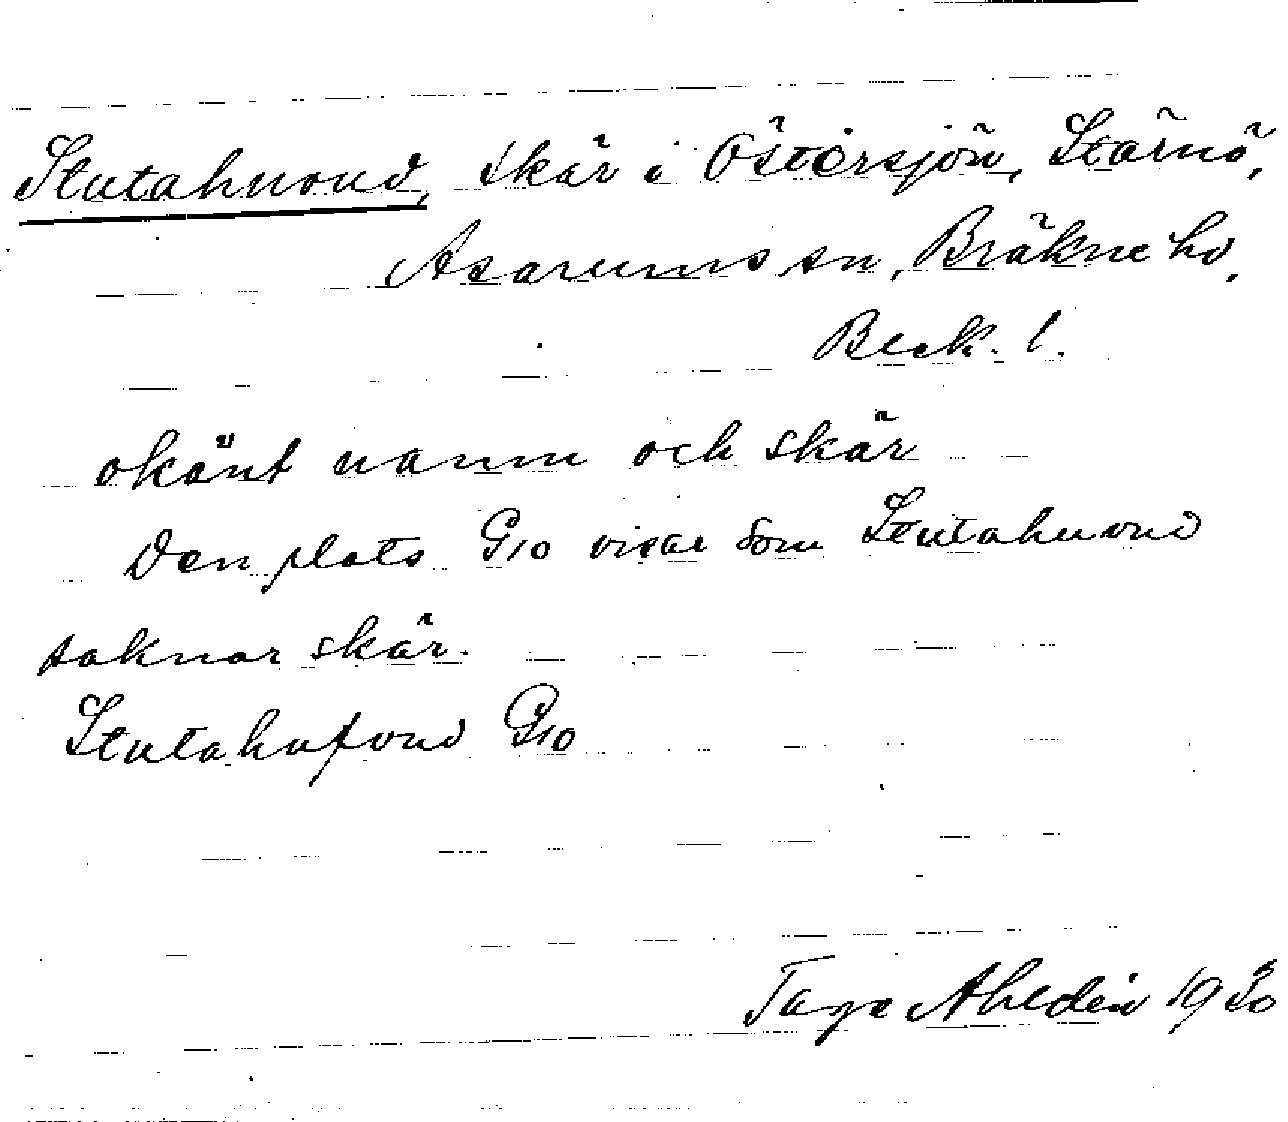 Stutahuvud, skär i Östersjön, Stärnö,
Asarums sn, Bräkne hd,
Blek. l.
okänt namn och skär
Den plats G10 visar som Stutahuvud
saknar skär.
Stutahufvud G10
Tage Ahldén 1930